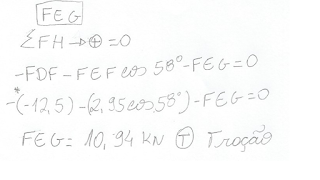 FEG
ΣFH → ⊕ = 0
-FDF - FEF cos 58° - FEG = 0
-(-12,5) - (2,95 cos 58°) - FEG = 0
FEG = 10,94 KN Ⓣ Tração